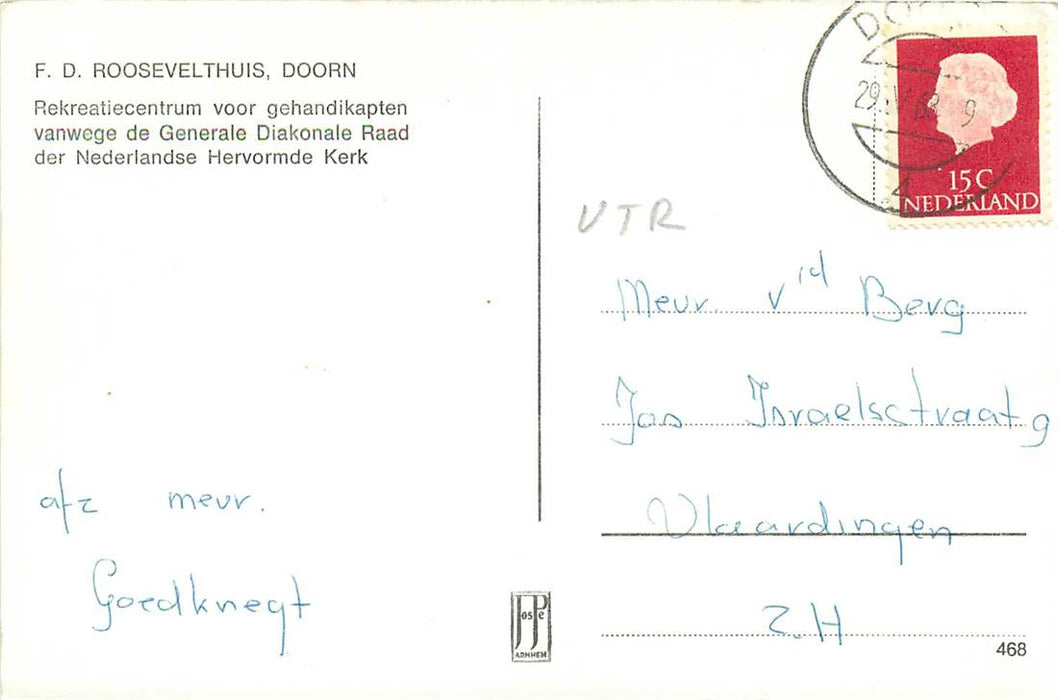 F. D. ROOSEVELTHUIS, DOORN
Rekreatiecentrum voor gehandikapten
vanwege de Generale Diakonale Raad
der Nederlandse Hervormde Kerk
afz meur.
Goedknegt
15C
NEDERLAND
VTR
Meur. v/d Berg
Jos Israelsctraat 9
Vlaardingen
Z.H
JosPe
ARNHEM
468